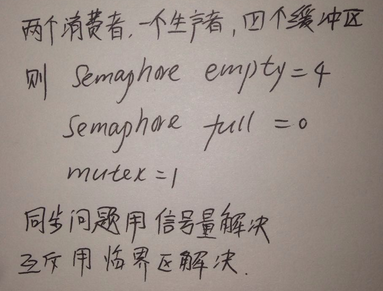 两个消费者,一个生产者,四个缓冲区
则 Semaphore empty=4
Semaphore full =0
mutex=1
同步问题用信号量解决
互斥用临界区解决.